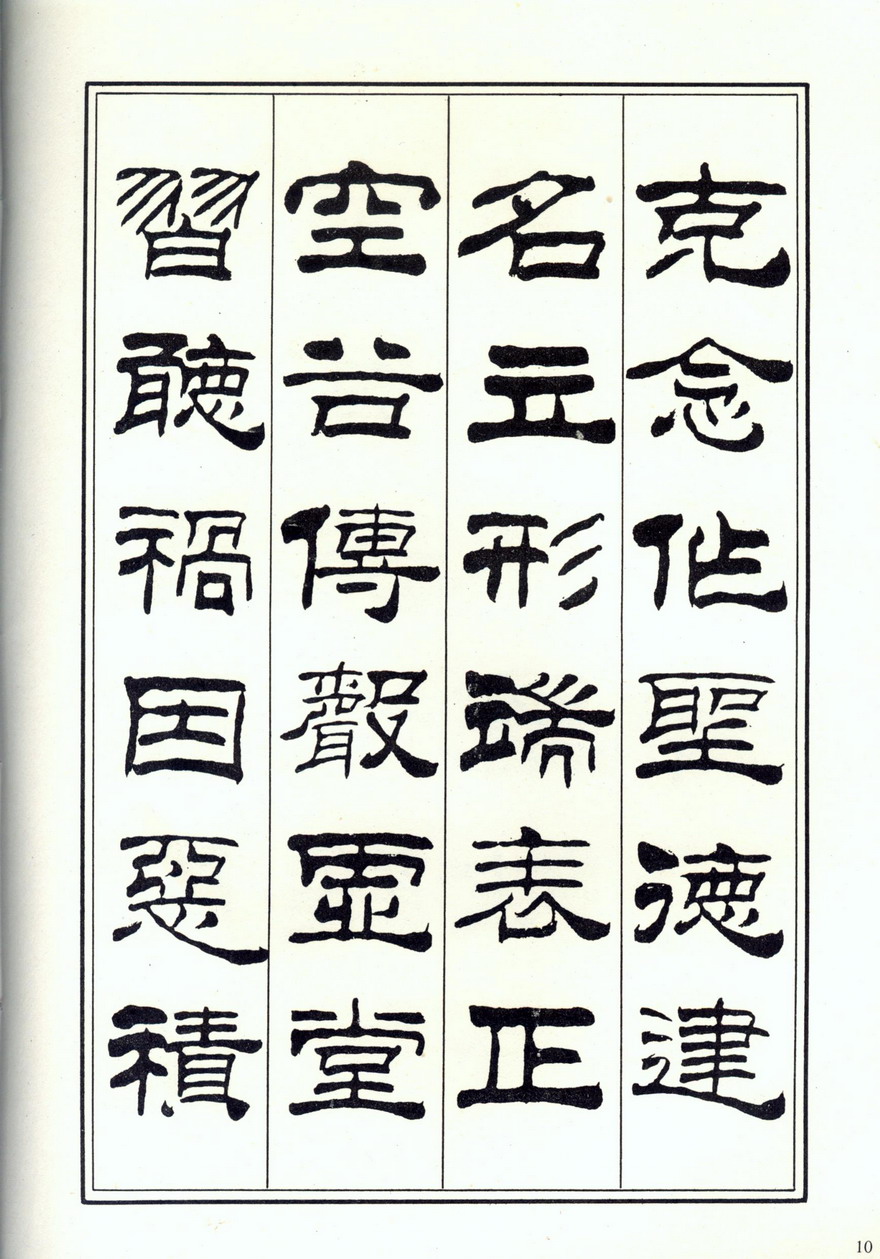 克念作聖德建
名立形端表正
空谷傳聲虛堂
習聽禍因惡積
10